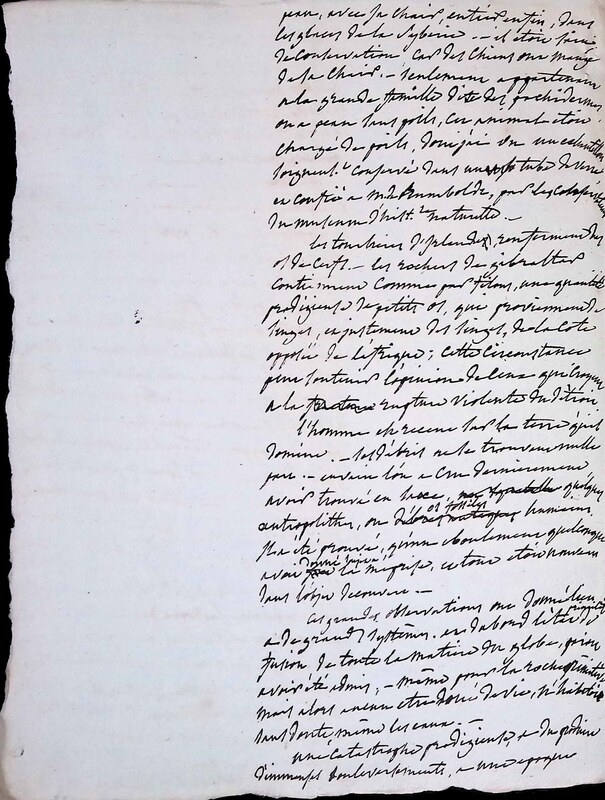 peau, avec sa chair, entier enfin, dans
les glaces de la Syberie. — il étoit si
de conservation car des chiens ont mangé
de la chair. — seulement appartenant
a la grande famille dite des pachidermes,
ou a peau sans poils, cet animal étoit
chargé de poils, dont j'ai vu un échantillon
soigneus.t conservé dans un tube de verre
et confié a mr de humbolde, par les
du museum d'hist.re naturelle. —
les tourbieres d' renferment des
os de cerfs. — les rochers de gibraltar
contiennent comme par filons, une quantité
prodigieuse de petits os, qui proviennent de
singes, et justement des singes, de la cote
opposée de l'afrique; cette circonstance
peut soutenir l'opinion de ceux qui croyent
a la rupture violente du détroit
l'homme est recent sur la terre qu'il
domine. — ses débris ne se trouvent nulle
part. — en vain l'on a cru dernierement
avoir trouvé en quelques
antropolithes, ou os fossiles humains.
il a été prouvé, qu'un eboulement quelconque
avoit donné lieu a la meprise, et tout étoit nouveau
dans l'objet decouvert. —
ces grandes observations ont donné lieu
a de grands systêmes. et d'abord l'état de
fusion de toute la matiere du globe, paroit
avoir été admis, — même pour la roche primitive,
mais alors aucun etre doué de vie, n'e habitoit
sans doute même les eaux. —
une catastrophe prodigieuse, a du produire
d'immenses boulversements, a une epoque